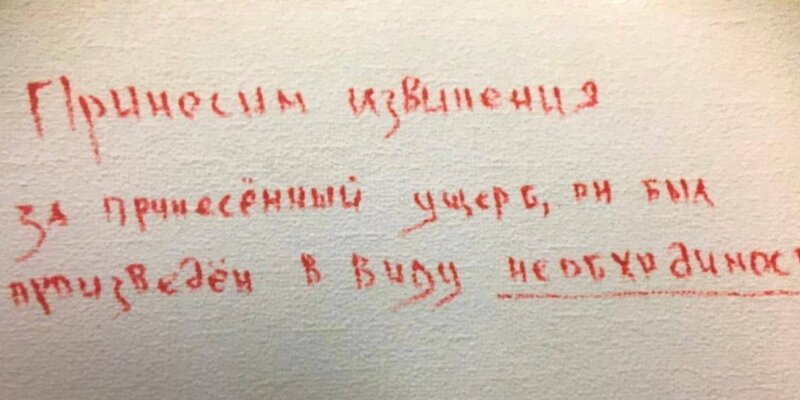 Приносим извинения
за принесённый ущерб, он был
произведён в виду необходимос